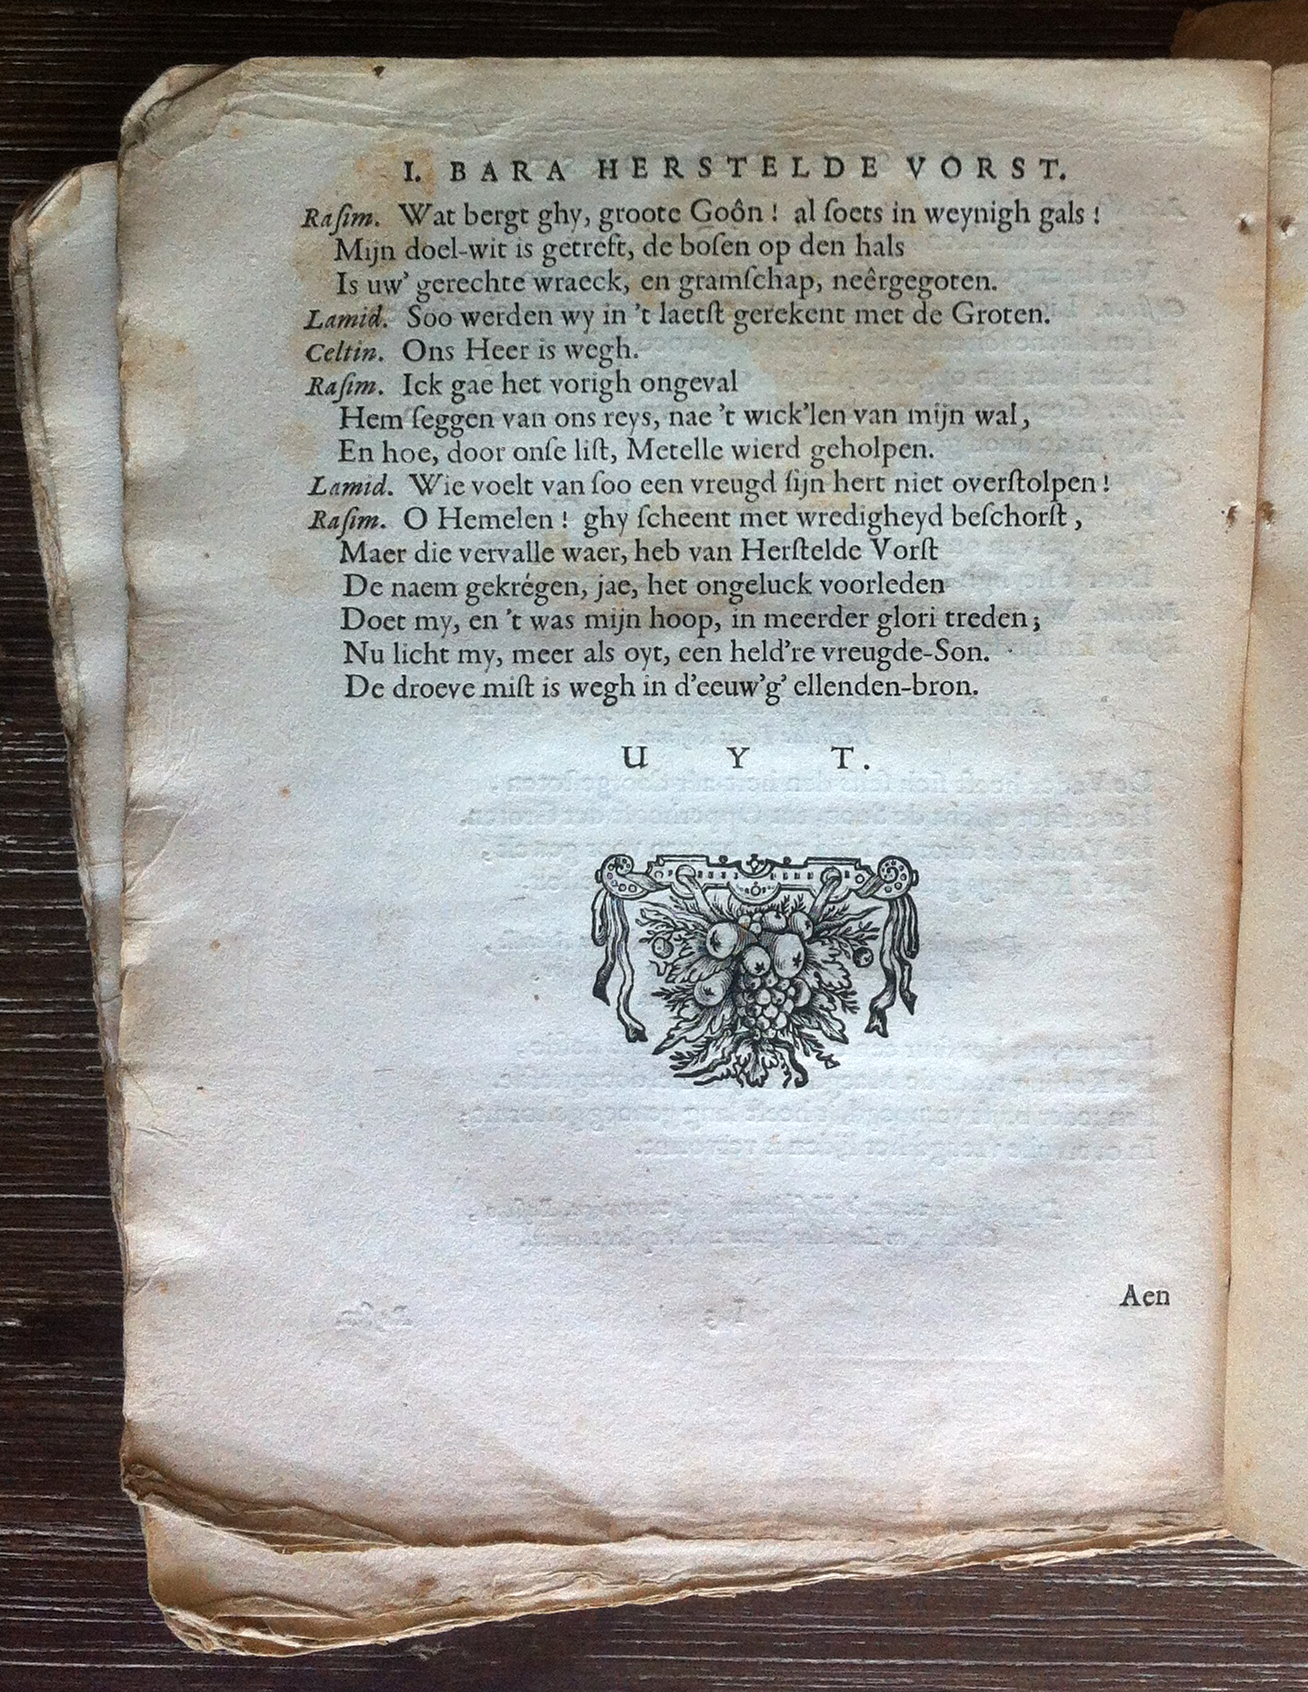 I. BARA HERSTELDE VORST.
Raſim. Wat bergt ghy, groote Goôn ! al ſoets in weynigh gals !
Mijn doel-wit is getreft, de boſen op den hals
Is uw' gerechte wraeck, en gramſchap, neêrgegoten.
Lamid. Soo werden wy in 't laetſt gerekent met de Groten.
Celtin. Ons Heer is wegh.
Raſim. Ick gae het vorigh ongeval
Hem ſeggen van ons reys, nae 't wick'len van mijn wal,
En hoe, door onſe liſt, Metelle wierd geholpen.
Lamid. Wie voelt van ſoo een vreugd ſijn hert niet overſtolpen !
Raſim. O Hemelen ! ghy ſcheent met wredigheyd beſchorſt ,
Maer die vervalle waer, heb van Herſtelde Vorſt
De naem gekrégen, jae, het ongeluck voorleden
Doet my, en 't was mijn hoop, in meerder glori treden;
Nu licht my, meer als oyt, een held're vreugde-Son.
De droeve miſt is wegh in d'eeuw'g' ellenden-bron.
UYT.
Aen